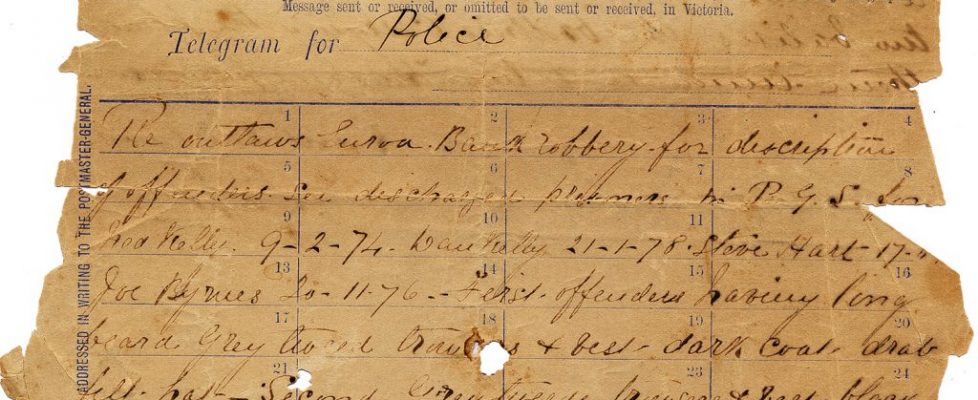 Message sent or received, or omitted to be sent or received, in Victoria.
Telegram for Police
1 2 3 4
Re outlaws Euroa Bank robbery for description
5 6 7 8
of offenders see discharged prisoners in P. G. S.
9 10 11
Ned Kelly 9-2-74 Dan Kelly 21-1-78 Steve Hart 17-
13 14 15 16
Joe Byrnes 20-11-76 - First offenders having long
17 18 19 20
beard Grey tweed trousers & vest dark coat drab
21 23 24
felt hat - Second Grey tweed trousers & vest black
ADDRESSED IN WRITING TO THE POSTMASTER-GENERAL.